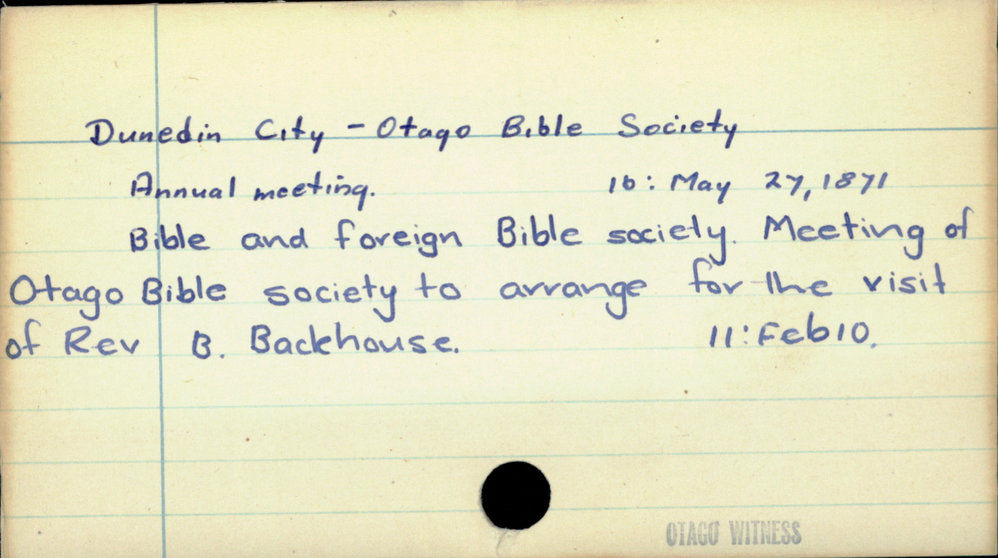 Dunedin City - Otago Bible Society
Annual meeting. 16: May 27, 1871
Bible and foreign Bible society. Meeting of
Otago Bible society to arrange for the visit
of Rev B. Backhouse. 11: Feb 10.
OTAGO WITNESS